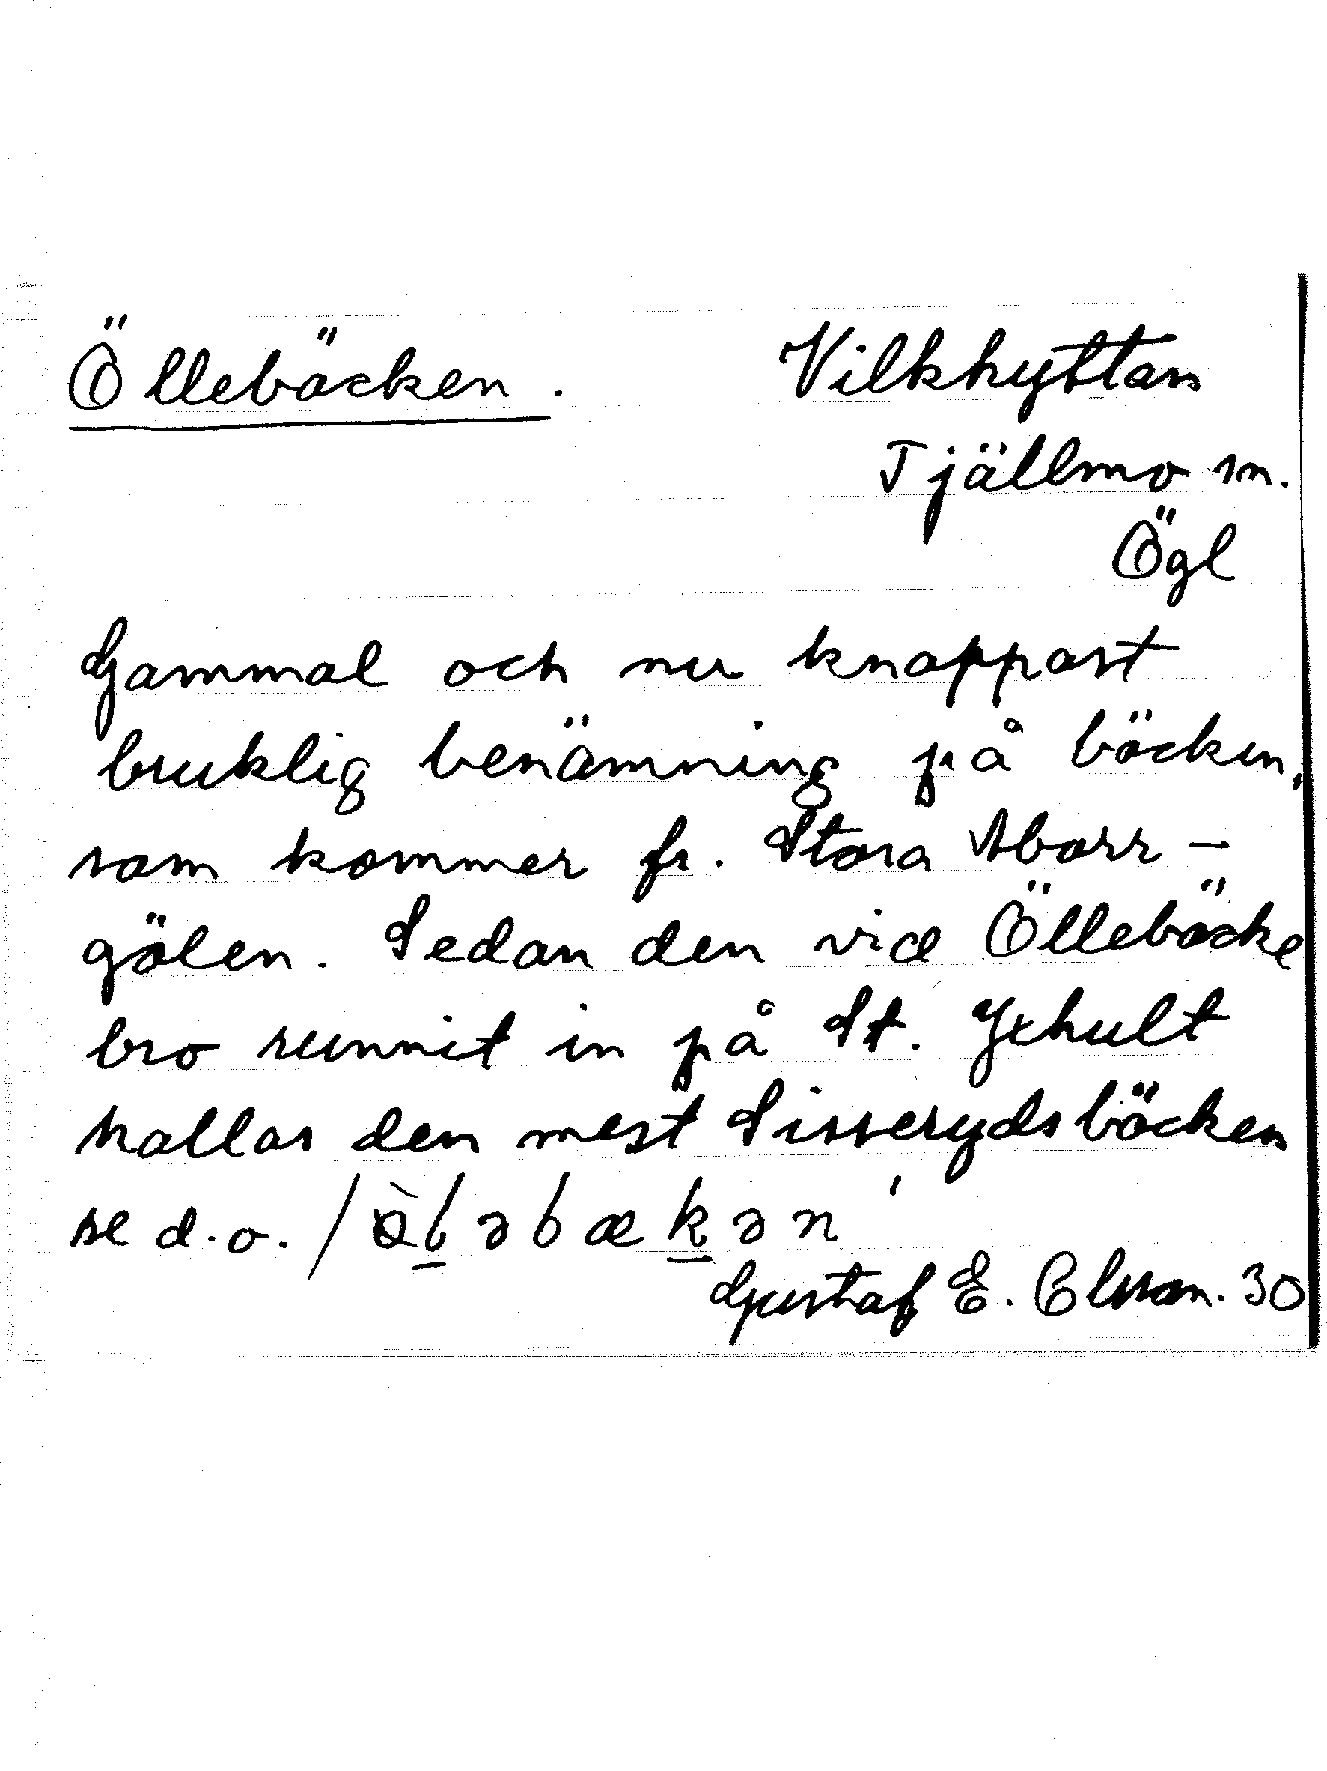 Öllebäcken.
Vilkhyttan
Tjällmo sn.
Ögl
Gammal och nu knappast
bruklig benämning på bäcken,
som kommer fr. Stora Aborr-
gölen. Sedan den vid Öllebäcke
bro runnit in på St. Yxhult
kallas den mest Sisserydsbäcken
se d.o. /
Gustaf E. Olsson. 30